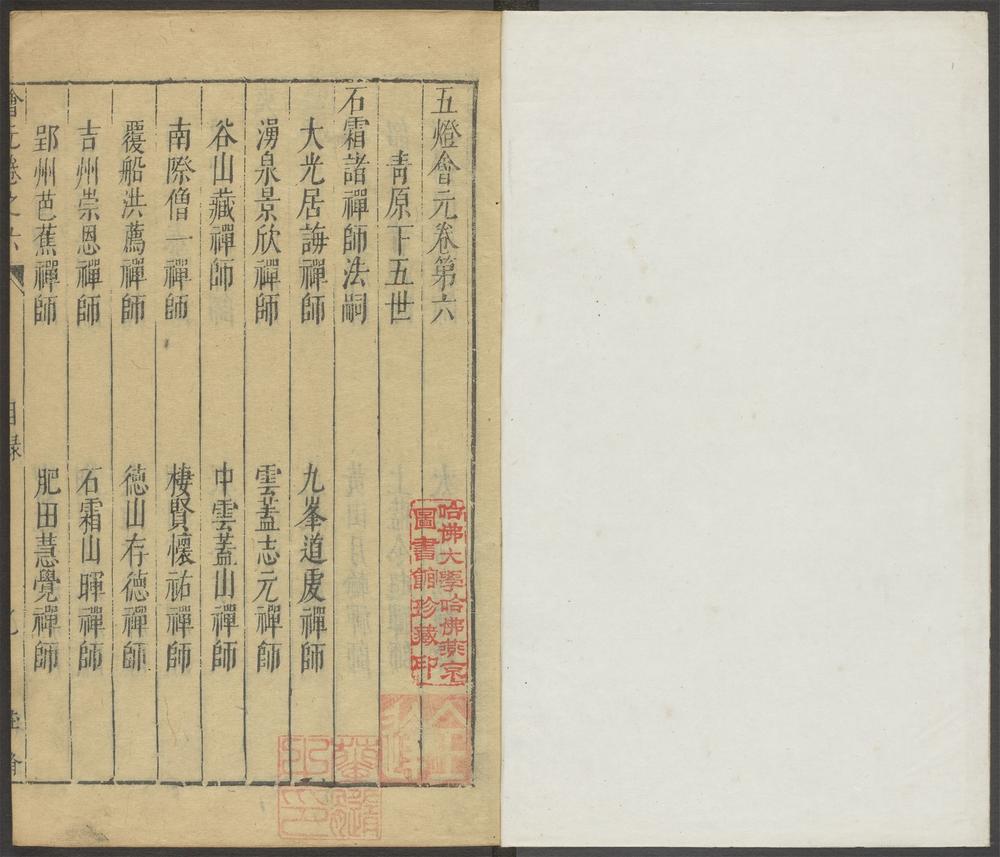 五燈會元卷第六
青原下五世
石霜諸禪師法嗣
大光居誨禪師　九峯道虔禪師
湧泉景欣禪師　雲蓋志元禪師
谷山藏禪師　中雲蓋山禪師
南際僧一禪師　棲賢懷祐禪師
覆船洪薦禪師　德山存德禪師
吉州崇恩禪師　石霜山暉禪師
郢州芭蕉禪師　肥田慧覺禪師
會元卷之六　目錄
哈佛大學哈佛燕京
圖書館珍藏印